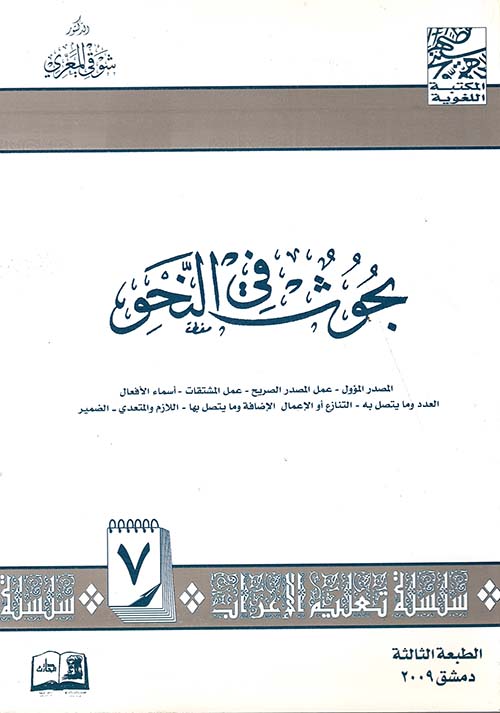 الدكتور
شوقي المعري
المكتبة
اللغوية
بحوث في النحو
المصدر المؤول - عمل المصدر الصريح - عمل المشتقات - أسماء الأفعال
العدد وما يتصل به - التنازع أو الإعمال الإضافة وما يتصل بها - اللازم والمتعدي - الضمير
٧
سلسلة تعليم الإعراب
سلسلة
الطبعة الثالثة
دمشق ٢٠٠٩